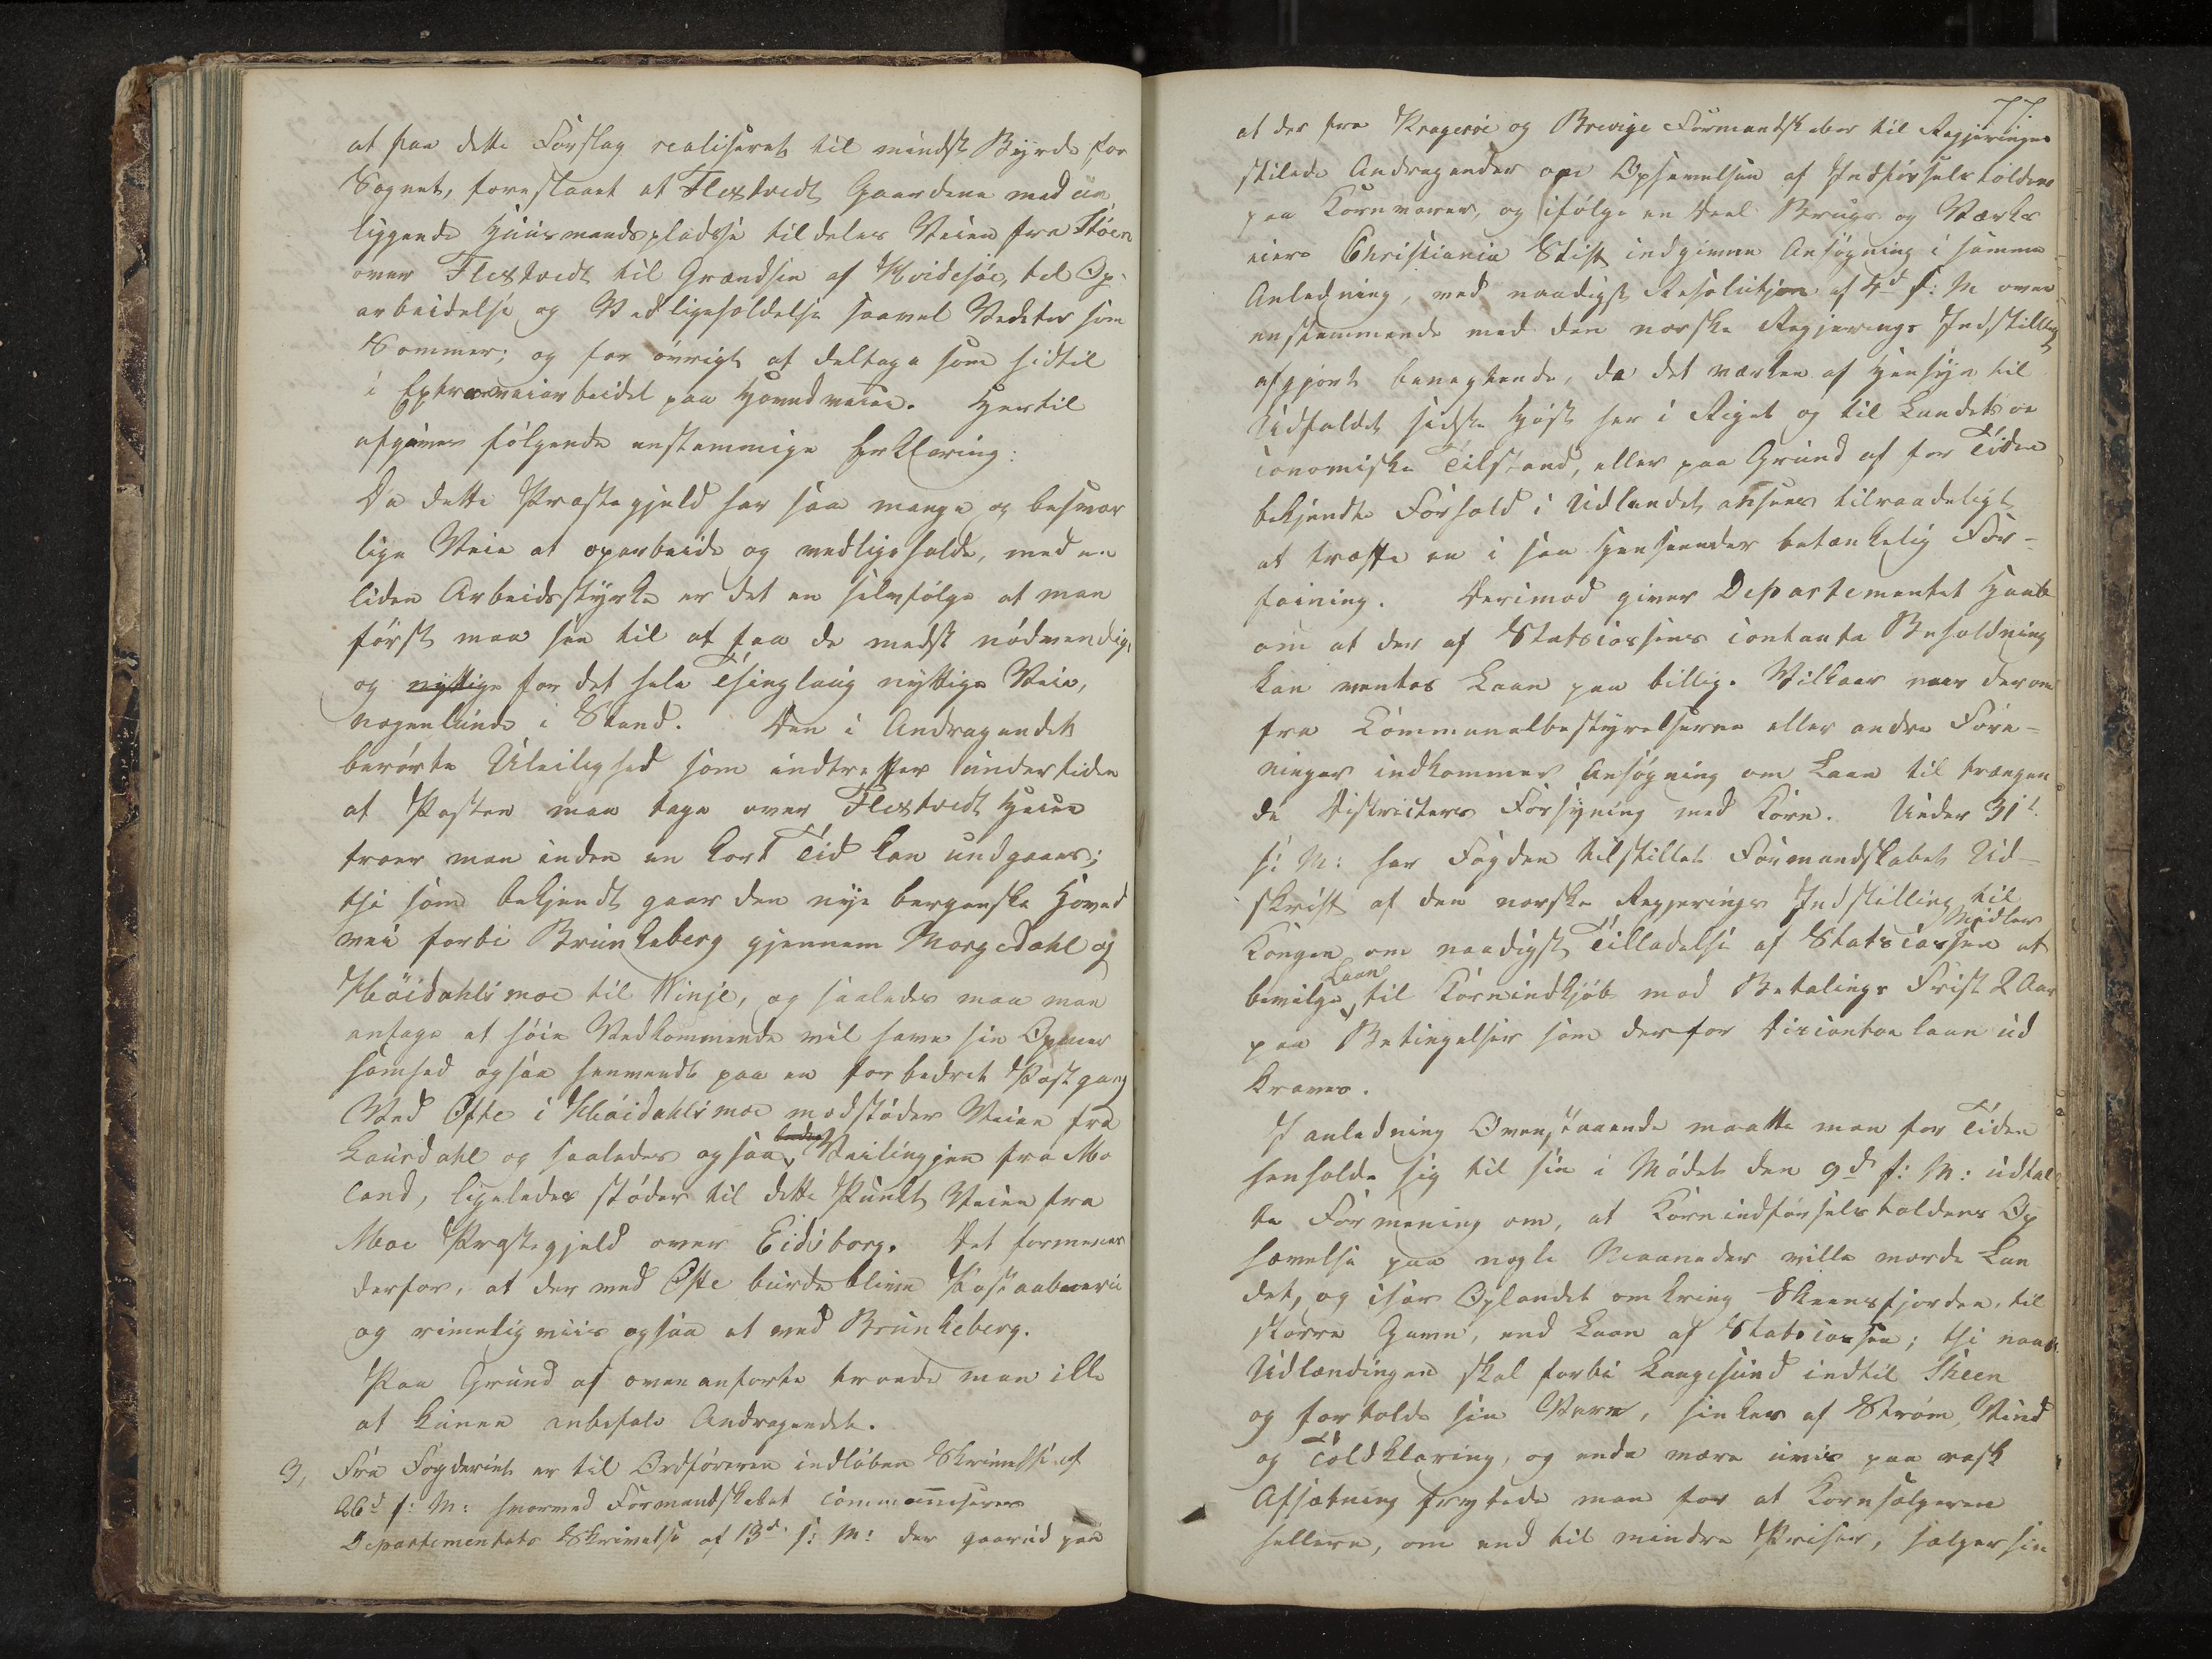 at faa dette Forslag realiseret til mindst Byrde for
Sognet, foreslaaet at Flestvedt Gaardene med un
liggende Huusmandspladse tildeles Veien fra Støen
over Flestvedt til Grændsen af Kvidesøe, til Op-
arbeidelse og Vedligeholdelse saavel Vinter som
Sommer; og for øvrigt at deltage som hidtil
i Extraveiarbeidet paa Hovedveien. Hertil
afgives følgende enstemmige Erklæring:
Da dette Præstegjeld har saa mange og besvær
lige Veie at oparbeide og vedligeholde, med en
liden Arbeidsstyrke er det en selvfølge at man
først maa see til at faa de mest nødvendige
og nyttige for det hele Thinglaug nyttige Veie,
nogenlunde i Stand. Den i Andragendet
berørte Uleilighed som indtreffer undertiden
at Posten maa tage over Flestvedt Heien
troer man inden en kort Tid kan undgaaes;
thi som bekjendt gaar den nye bergenske Hoved
vei forbi Brunkeberg gjennem Morgedahl og
Høidahlsmoe til Vinje, og saaledes maa man
antage at høie Vedkommende vil have sin Opmær
somhed ogsaa henvendt paa en forbedret Postgang
Ved Ofte i Høidahlsmoe modstøder Veien fra
Laurdahl og saaledes ogsaa bedre Veilinjen fra Mo
land, ligeledes støder til dette Punkt Veien fra
Moe Præstegjeld over Eidsborg. Det formenes
derfor, at der ved Ofte burde blive Postaabneri
og rimeligviis ogsaa et ved Brunkeberg.
Paa Grund af ovenanførte troede man ikke
at kunne anbefale Andragendet.
3, Fra Fogderiet er til Ordføreren indløben Skrivelse af
26d f: M: hvormed Formandskabet communiseres
Departementets Skrivelse af 13d. f: M: der gaar ud paa
77.
at der fra Kragerøe og Brevigs Formandskaber til Regjeringen
stilede Andragender om Ophævelsen af Indførselstolden
paa Kornvarer, og ifølge en Deel Brugs og Værks
eiere Christiania Stift indgivne Ansøgning i samme
Anledning, ved naadigst Resolution af 4d f: M over
enstemmende med den norske Regjerings Indstilling
afgjort benegtende, da det værken af Hensyn til
Udfaldet sidste Høst her i Riget og til Landets oe
conomiske Tilstand, eller paa Grund af for Tiden
bekjendte Forhold i Udlandet ansees tilraadeligt
at træffe en i saa Henseender betænkelig For-
føining. Derimod giver Departementet Haab
om at der af Statscassens contante Beholdning
kan ventes Laan paa billig. Vilkaar naar derom
fra Kommunalbestyrelserne eller andre Fore-
ninger indkommer Ansøgning om Laan til trængen
de Districters Forsyning med Korn. Under 31t.
f: M: har Fogden tilstillet Formandskabet Ud-
skrift af den norske Regjerings Indstilling til
Kongen om naadigst Tilladelse af Statscassens Midler at
bevilge Laan til Kornindkjøb mod Betalings Frist 2 Aar
paa Betingelser som der for Discontoe laan ud
kræves.
I anledning Ovenstaaende maatte man for Tiden
henholde sig til sin i Mødet den 9d f: M: udtal
te Formening om, at Kornindførselstoldens Op
hævelse paa nogle Maaneder ville vorde Lan
det, og især Oplandet omkring Skeensfjorden, til
større Gavn, end Laan af Statscassen; thi naar
Udlændingen skal forbi Langesund indtil Skeen
og fortolde sin Vare, sinkes af Strøm, Vind
og Toldklarering, og enda være uvis paa rask
Afsætning frygtede man for at Kornsælgeren
hellere, om end til mindre Priser, sælger sin